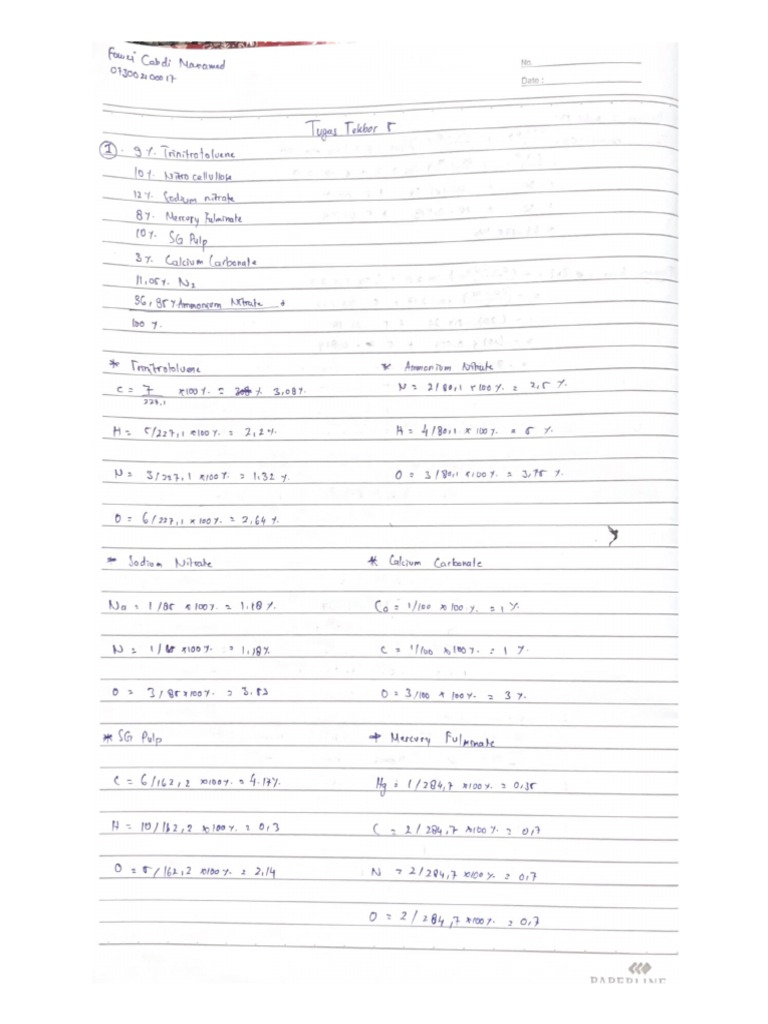 Fawzi Cabdi Maxamed
073002100017
No.
Date :
Tugas Tekbor 5
1. 9 % Trinitrotoluene
10 % Nitro cellullose
12 % Sodium nitrate
8 % Mercury Fulminate
10 % SG Pulp
3 % Calcium Carbonate
11,05 % N2
36,95 % Ammonium Nitrate +
100 %
* Trinitrotoluene
C = 7/227,1 x100 % = 3,08 %
H = 5/227,1 x100 % = 2,2 %
N = 3/227,1 x100 % = 1,32 %
O = 6/227,1 x100 % = 2,64 %
* Ammonium Nitrate
N = 2/80,1 x 100 % = 2,5 %
H = 4/80,1 x 100 % = 5 %
O = 3/80,1 x100 % = 3,75 %
* Sodium Nitrate
Na = 1/85 x100 % = 1,18 %
N = 1/85 x100 % = 1,18 %
O = 3/85 x100 % = 3,53
* Calcium Carbonate
Ca = 1/100 x 100 % = 1 %
C = 1/100 x 100 % = 1 %
O = 3/100 x 100 % = 3 %
* SG Pulp
C = 6/162,2 x100 % = 4.17 %
H = 10/162,2 x100 % = 0,3
O = 5/162,2 x100 % = 2,14
* Mercury Fulminate
Hg = 1/284,7 x100 % = 0,35
C = 2/284,7 x100 % = 0,7
N = 2/284,7 x100 % = 0,7
O = 2/284,7 x100 % = 0,7
PAPERLINE